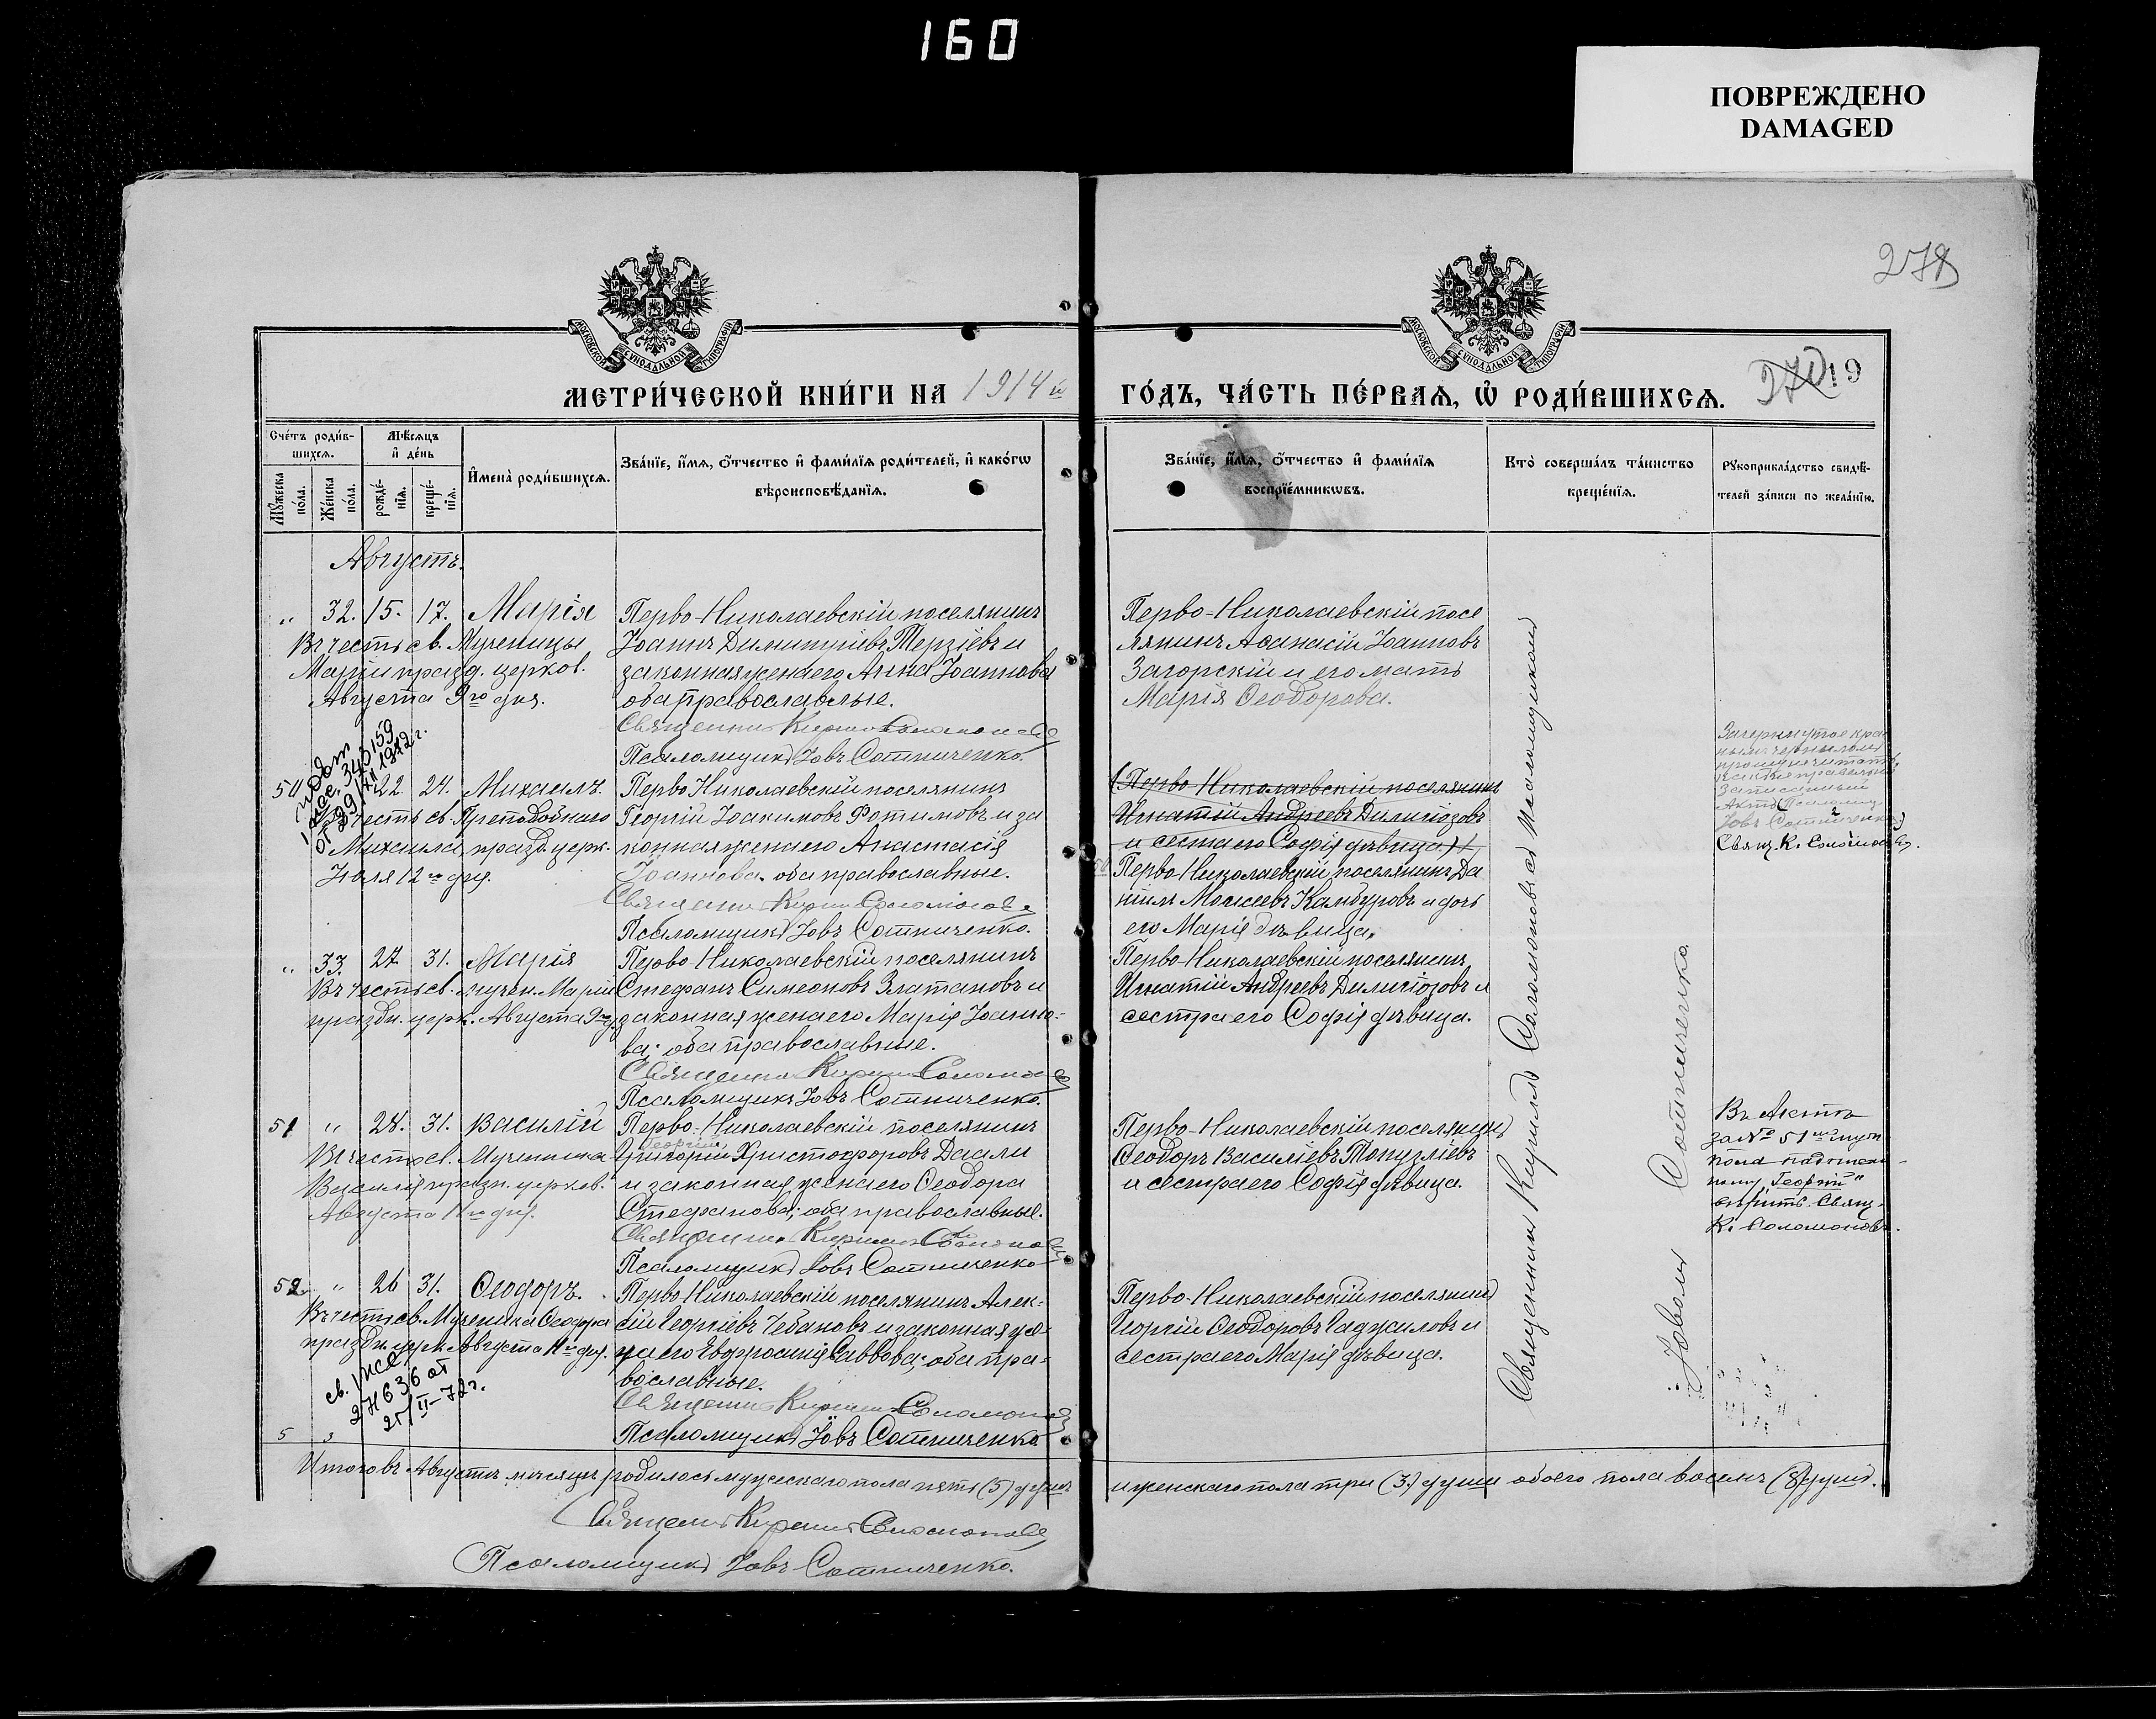 160
ПОВРЕЖДЕНО
DAMAGED
278
МОСКОВСКОЙ СѴНОДАЛЬНОЙ ТИПОГРАФІИ
МОСКОВСКОЙ СѴНОДАЛЬНОЙ ТИПОГРАФІИ
МЕТРИ́ЧЕСКОЙ КНИ́ГИ НА 1914 й
ГО́ДЪ, ЧА́СТЬ ПЕ́РВАѦ, Ѽ РОДИ́ВШИХСѦ.
19
Сче́тъ роди́в-
шихсѧ.
Мꙋ́жеска по́ла.
Же́нска по́ла.
Мѣ́сѧцъ
и҆ де́нь
рожде́-
нїѧ.
креще́-
нїѧ.
И҆мена̀ роди́вшихсѧ.
Зва́нїе, и҆́мѧ, ѻ҆́тчество и҆ фами́лїѧ роди́телей, и҆ како́гѡ
вѣроисповѣ́данїѧ.
Зва́нїе, и҆́мѧ, ѻ҆́тчество и҆ фами́лїѧ
воспрїе́мникѡвъ.
Кто̀ соверша́лъ та́инство
креще́нїѧ.
Рꙋкоприкла́дство свидѣ́-
телей за́писи по жела́нїю.
Августъ.
" 32. 15. 17. Марія
Въ честь св. Мученицы
Маріи празд. церков.
Августа 9го дня.
Перво-Николаевскій поселянинъ
Іоаннъ Димитріевъ Терзіевъ и
законная жена его Анна Іоаннова
оба православные.
Священникъ Кириллъ Соломоновъ
Псаломщикъ Іовъ Сотниченко.
Перво-Николаевскій посе
лянинъ Аѳанасій Іоанновъ
Загорскій и его мать
Марія Ѳеодорова.
50 22 24. Михаилъ.
Въ честь св. Преподобнаго
Михаила, празд. церк.
Іюля 12го дня.
Перво Николаевскій поселянинъ
Георгій Іоакимовъ Фотимовъ и за
конная жена его Анастасія
Іоаннова. оба православные.
Священникъ Кириллъ Соломоновъ
Псаломщикъ Іовъ Сотниченко.
(Перво Николаевскій поселянинъ
Игнатій Андреевъ Дилигіозовъ
и сестра его Софія дѣвица.)
Перво Николаевскій поселянинъ Да
ніилъ Моисеевъ Камбуровъ и дочь
его Марія дѣвица.
Свящ. К. Соломоновъ.
" 33. 27. 31. Марія
Въ честь св. мучен. Маріи
праздн. церк. Августа 9го д.
Перво Николаевскій поселянинъ
Стефанъ Симеоновъ Златановъ и
законная жена его Марія Іоанно-
ва; оба православные.
Священникъ Кириллъ Соломоновъ
Псаломщикъ Іовъ Сотниченко.
Перво-Николаевскій поселянинъ,
Игнатій Андреевъ Дилигіозовъ и
сестра его Софія дѣвица.
51 " 28. 31. Василій
Въ честь св. Мученика
Василія праздн. церков.
Августа 11го дня.
Перво-Николаевскій поселянинъ
Георгій
Григорій Христофоровъ Даали
и законная жена его Ѳеодора
Стефанова; оба православные.
Священникъ Кириллъ Соломоновъ
Псаломщикъ Іовъ Сотниченко
Перво-Николаевскій поселянинъ
Ѳеодоръ Василіевъ Топузліевъ
и сестра его Софія дѣвица.
Въ Актѣ
за № 51 муж
пола
Георгій"
вѣрить. Свящ.
К. Соломоновъ.
52 " 26 31. Ѳеодоръ.
Въ честь св. Мученика Ѳеодора
праздн. церк. Августа 11го дня.
Перво Николаевскій поселянинъ Алек-
сій Георгіевъ Чебановъ и законная же-
на его Евфросинія Саввова; оба пра-
вославные.
Священникъ Кириллъ Соломоновъ
Псаломщикъ Іовъ Сотниченко
Перво-Николаевскій поселянинъ
Георгій Ѳеодоровъ Гаджиловъ и
сестра его Марія дѣвица.
Священникъ Кириллъ Соломоновъ съ псаломщикомъ
Іовомъ Сотниченко
5 3
Итого въ Августѣ мѣсяцѣ родилось мужескаго пола пять (5) душъ
и женскаго пола три (3) души обоего пола восемь (8) душъ.
Священникъ Кириллъ Соломоновъ
Псаломщикъ Іовъ Сотниченко.